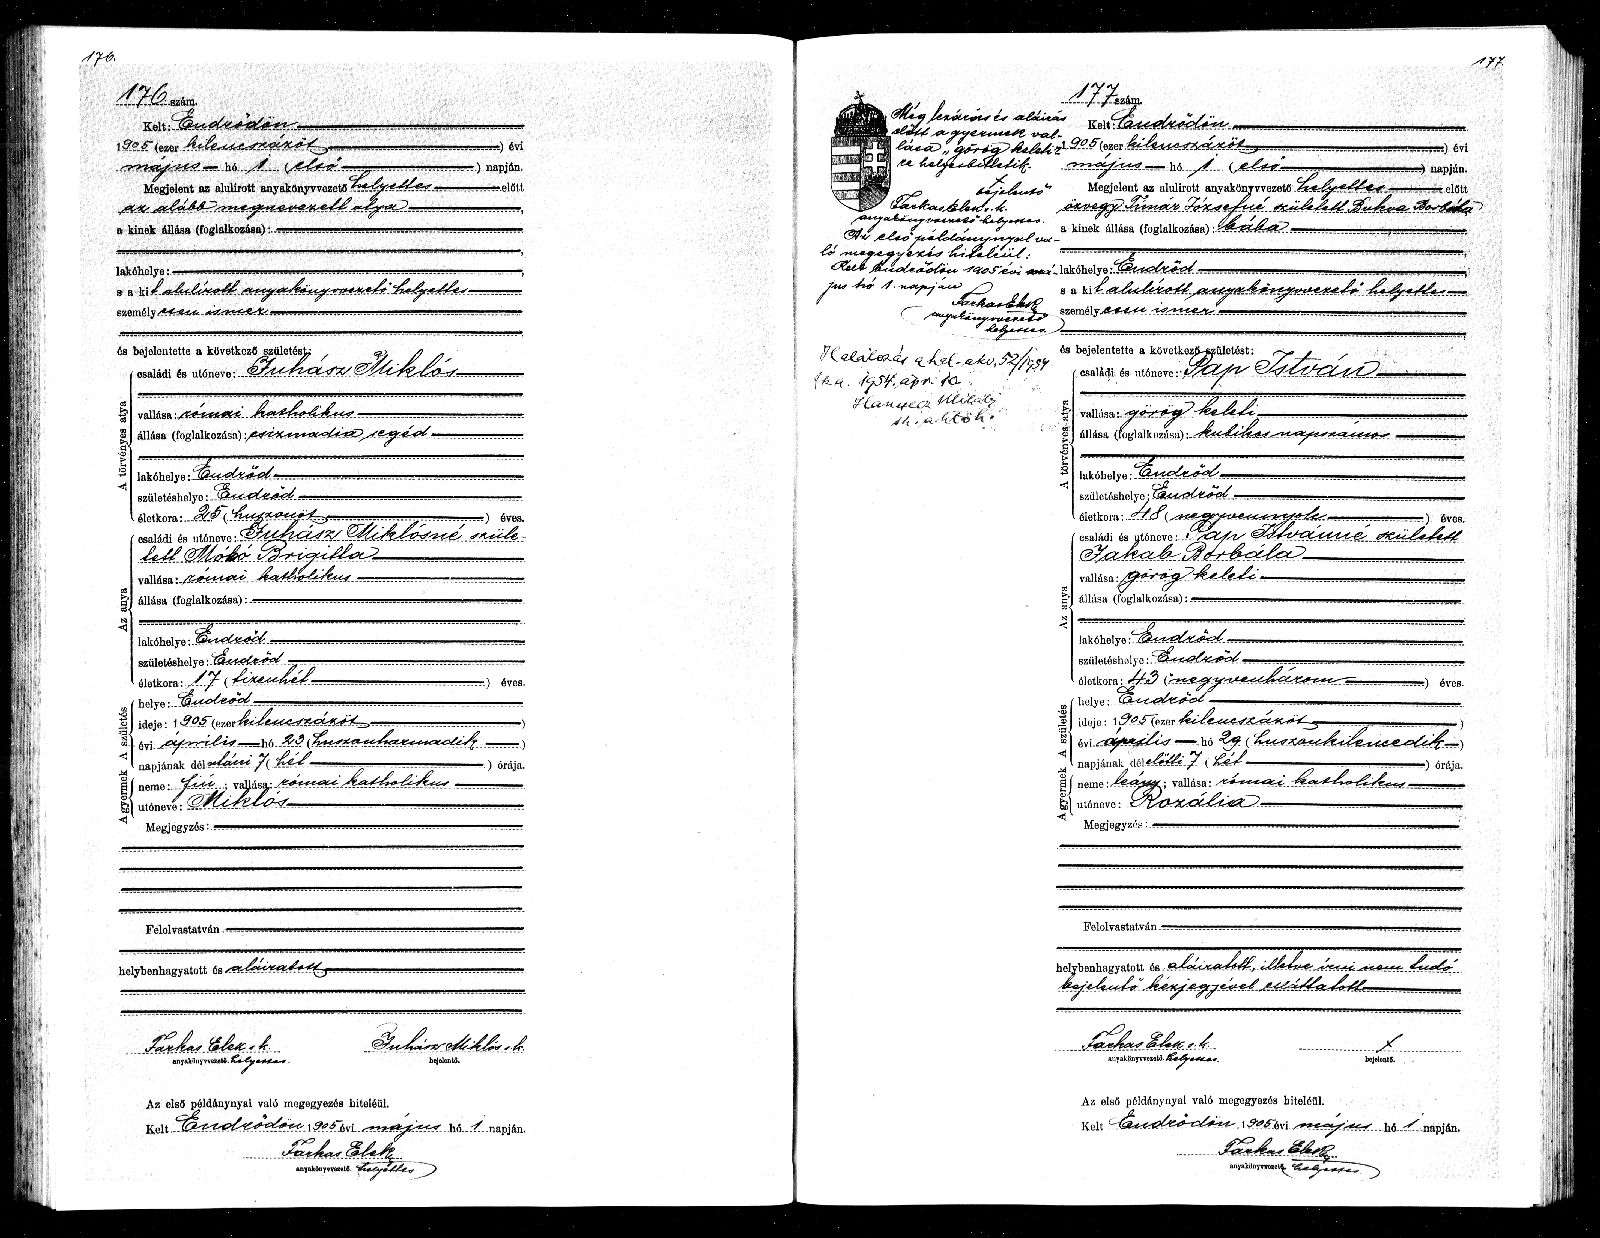 176.
176 szám.
Kelt: Endrődön
1905 (ezer kilencszázöt) évi
május hó 1 (első) napján.
Megjelent az alulirott anyakönyvvezető helyettes előtt
az alább megnevezett atya,
a kinek állása (foglalkozása):
lakóhelye:
s a kit alulírott anyakönyvvezető helyettes
személyesen ismer
és bejelentette a következő születést:
A törvényes atya
családi és utóneve: Juhász Miklós
vallása: római katholikus
állása (foglalkozása): csizmadia segéd
lakóhelye: Endrőd
születéshelye: Endrőd
életkora: 25 (huszonöt) éves.
Az anya
családi és utóneve: Juhász Miklósné szüle-
tett Mókó Brigitta
vallása: római katholikus
állása (foglalkozása):
lakóhelye: Endrőd
születéshelye: Endrőd
életkora: 17 (tizenhét) éves.
A születés
helye: Endrőd
ideje: 1905 (ezer kilencszázöt)
évi április hó 23 (huszonharmadik)
napjának délutáni 7 (hét) órája.
A gyermek
neme: fiú; vallása: római katholikus
utóneve: Miklós
Megjegyzés:
Felolvastatván
helybenhagyatott és aláíratott
Farkas Elek s.k. Juhász Miklós s.k.
anyakönyvvezető helyettes. bejelentő.
Az első példánynyal való megegyezés hiteléül.
Kelt Endrődön, 1905 évi május hó 1 napján.
Farkas Elek
anyakönyvvezető helyettes
177.
Még lezárás és aláirás
előtt a gyermek val-
lása "görög keleti"
re helyesbittetik.
+
bejelentő
Farkas Elek s.k.
anyakönyvvezető helyettes.
Az első példánynyal va-
ló megegyezés hiteléül:
Kelt Endrődön 1905 évi má-
jus hó 1. napján
Farkas Elek
anyakönyvvezető
helyettes
Halálozás a hal. akv. 52/1954
1954. ápr. 10.
Mihály
177 szám.
Kelt: Endrődön
1905 (ezer kilencszázöt) évi
május hó 1 (első) napján.
Megjelent az alulirott anyakönyvvezető helyettes előtt
özvegy Tímár Józsefné született Duhva Borbála
a kinek állása (foglalkozása): bába
lakóhelye: Endrőd
s a kit alulírott anyakönyvvezető helyettes
személyesen ismer
és bejelentette a következő születést:
A törvényes atya
családi és utóneve: Pap István
vallása: görög keleti
állása (foglalkozása): kubikos napszámos
lakóhelye: Endrőd
születéshelye: Endrőd
életkora: 48 (negyvennyolc) éves.
Az anya
családi és utóneve: Pap Istvánné született
Jakab Borbála
vallása: görög keleti
állása (foglalkozása):
lakóhelye: Endrőd
születéshelye: Endrőd
életkora: 43 (negyvenhárom) éves.
A születés
helye: Endrőd
ideje: 1905 (ezer kilencszázöt)
évi április hó 29 (huszonkilencedik)
napjának délelőtti 7 (hét) órája.
A gyermek
neme: leány; vallása: római katholikus
utóneve: Rozália
Megjegyzés:
Felolvastatván
helybenhagyatott és aláiratott, illetve írni nem tudó
bejelentő kézjegyével elláttatott
Farkas Elek s.k. +
anyakönyvvezető helyettes. bejelentő.
Az első példánynyal való megegyezés hiteléül.
Kelt Endrődön, 1905 évi május hó 1 napján.
Farkas Elek
anyakönyvvezető helyettes